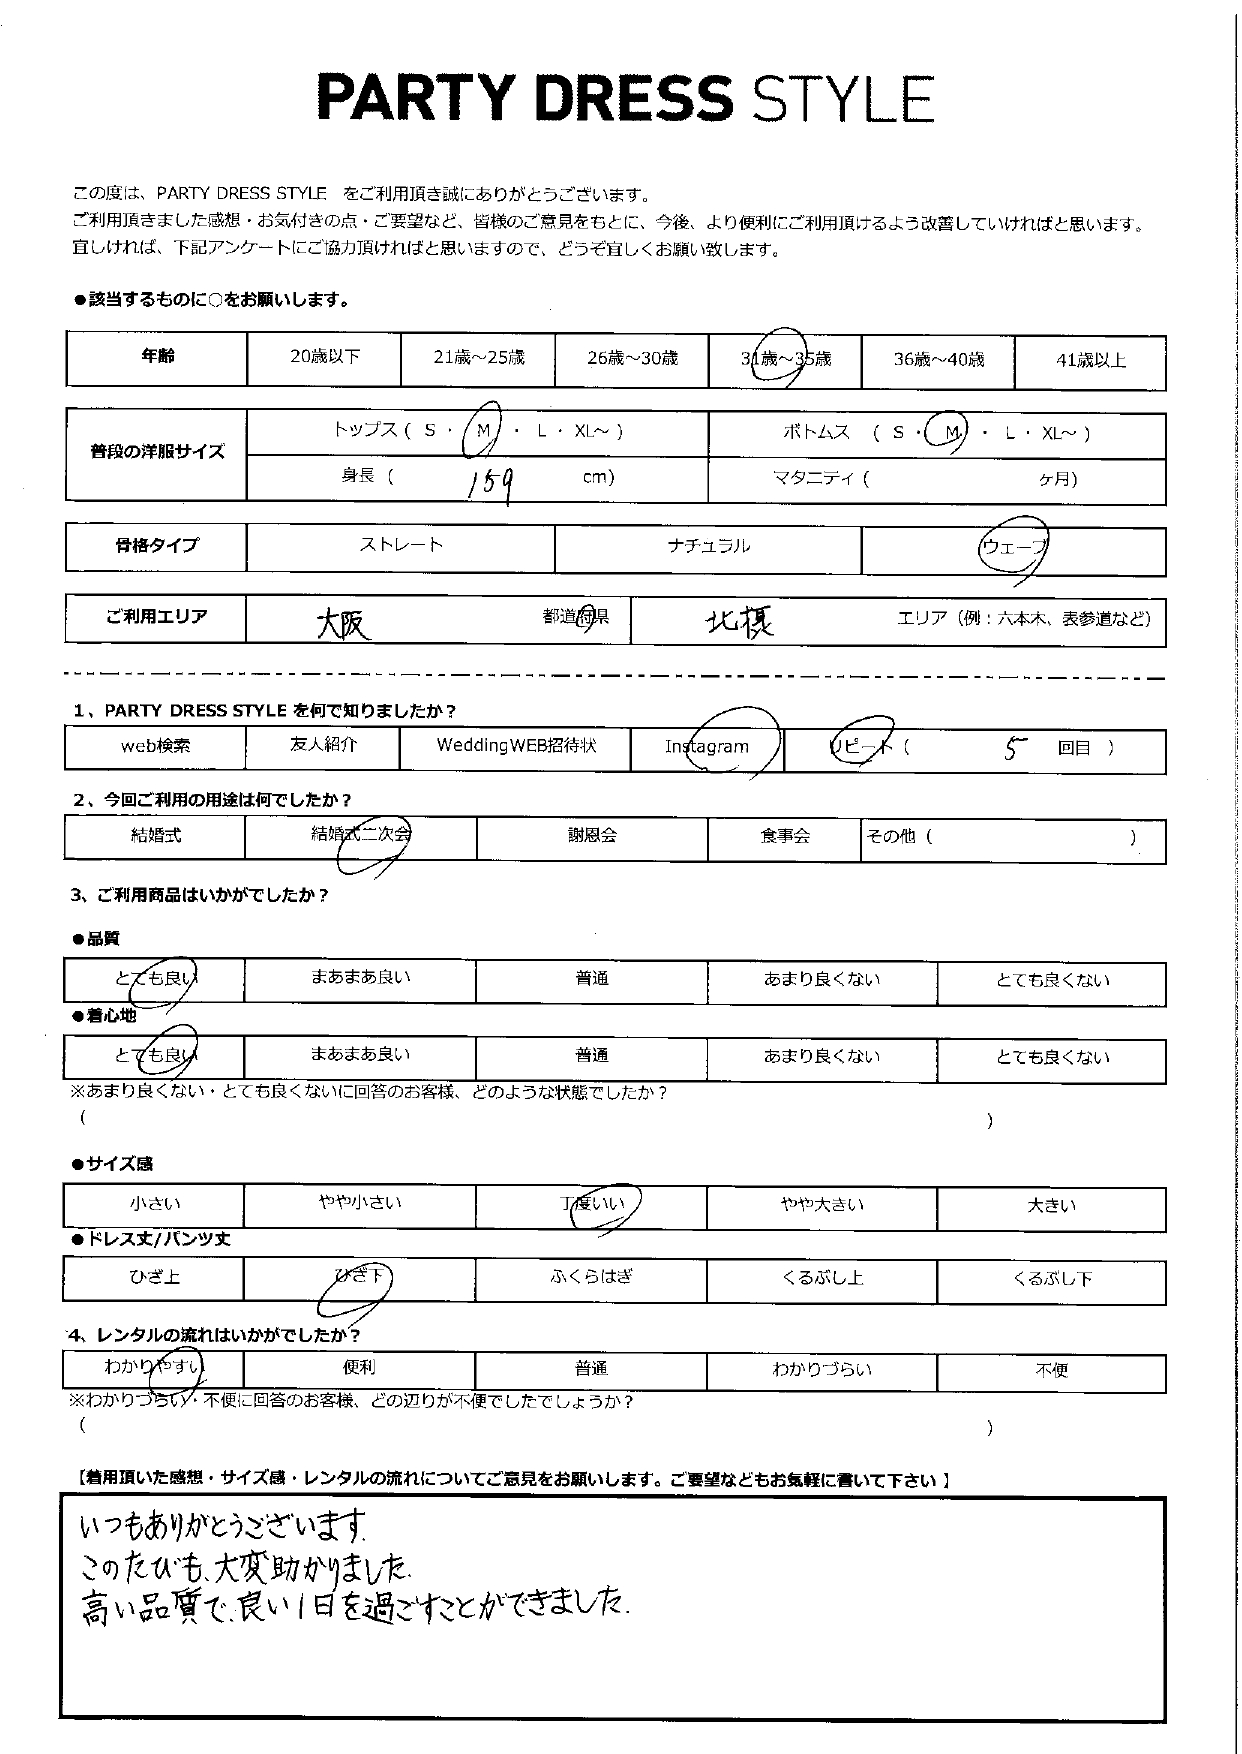 PARTY DRESS STYLE
この度は、PARTY DRESS STYLE をご利用頂き誠にありがとうございます。
ご利用頂きました感想・お気付きの点・ご要望など、皆様のご意見をもとに、今後、より便利にご利用頂けるよう改善していければと思います。
宜しければ、下記アンケートにご協力頂ければと思いますので、どうぞ宜しくお願い致します。
●該当するものに○をお願いします。
年齢 20歳以下 21歳～25歳 26歳～30歳 31歳～35歳 36歳～40歳 41歳以上
普段の洋服サイズ トップス ( S ・ M ・ L ・ XL～ ) ボトムス ( S ・ M ・ L ・ XL～ )
身長 ( 159 cm) マタニティ ( ヶ月)
骨格タイプ ストレート ナチュラル ウェーブ
ご利用エリア 大阪 都道府県 北摂 エリア（例：六本木、表参道など）
1、PARTY DRESS STYLE を何で知りましたか？
web検索 友人紹介 WeddingWEB招待状 Instagram リピート ( 5 回目 )
2、今回ご利用の用途は何でしたか？
結婚式 結婚式二次会 謝恩会 食事会 その他 ( )
3、ご利用商品はいかがでしたか？
●品質
とても良い まあまあ良い 普通 あまり良くない とても良くない
●着心地
とても良い まあまあ良い 普通 あまり良くない とても良くない
※あまり良くない・とても良くないに回答のお客様、どのような状態でしたか？
( )
●サイズ感
小さい やや小さい 丁度いい やや大きい 大きい
●ドレス丈/パンツ丈
ひざ上 ひざ下 ふくらはぎ くるぶし上 くるぶし下
4、レンタルの流れはいかがでしたか？
わかりやすい 便利 普通 わかりづらい 不便
※わかりづらい・不便に回答のお客様、どの辺りが不便でしたでしょうか？
( )
【着用頂いた感想・サイズ感・レンタルの流れについてご意見をお願いします。ご要望などもお気軽に書いて下さい】
いつもありがとうございます.
このたびも、大変助かりました.
高い品質で、良い1日を過ごすことができました.